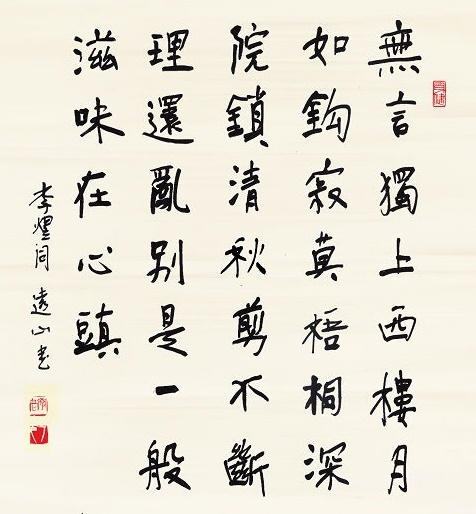 無言獨上西樓月
如鈎寂莫梧桐深
院鎖清秋剪不斷
理還亂别是一般
滋味在心頭
李煜词 遠山书